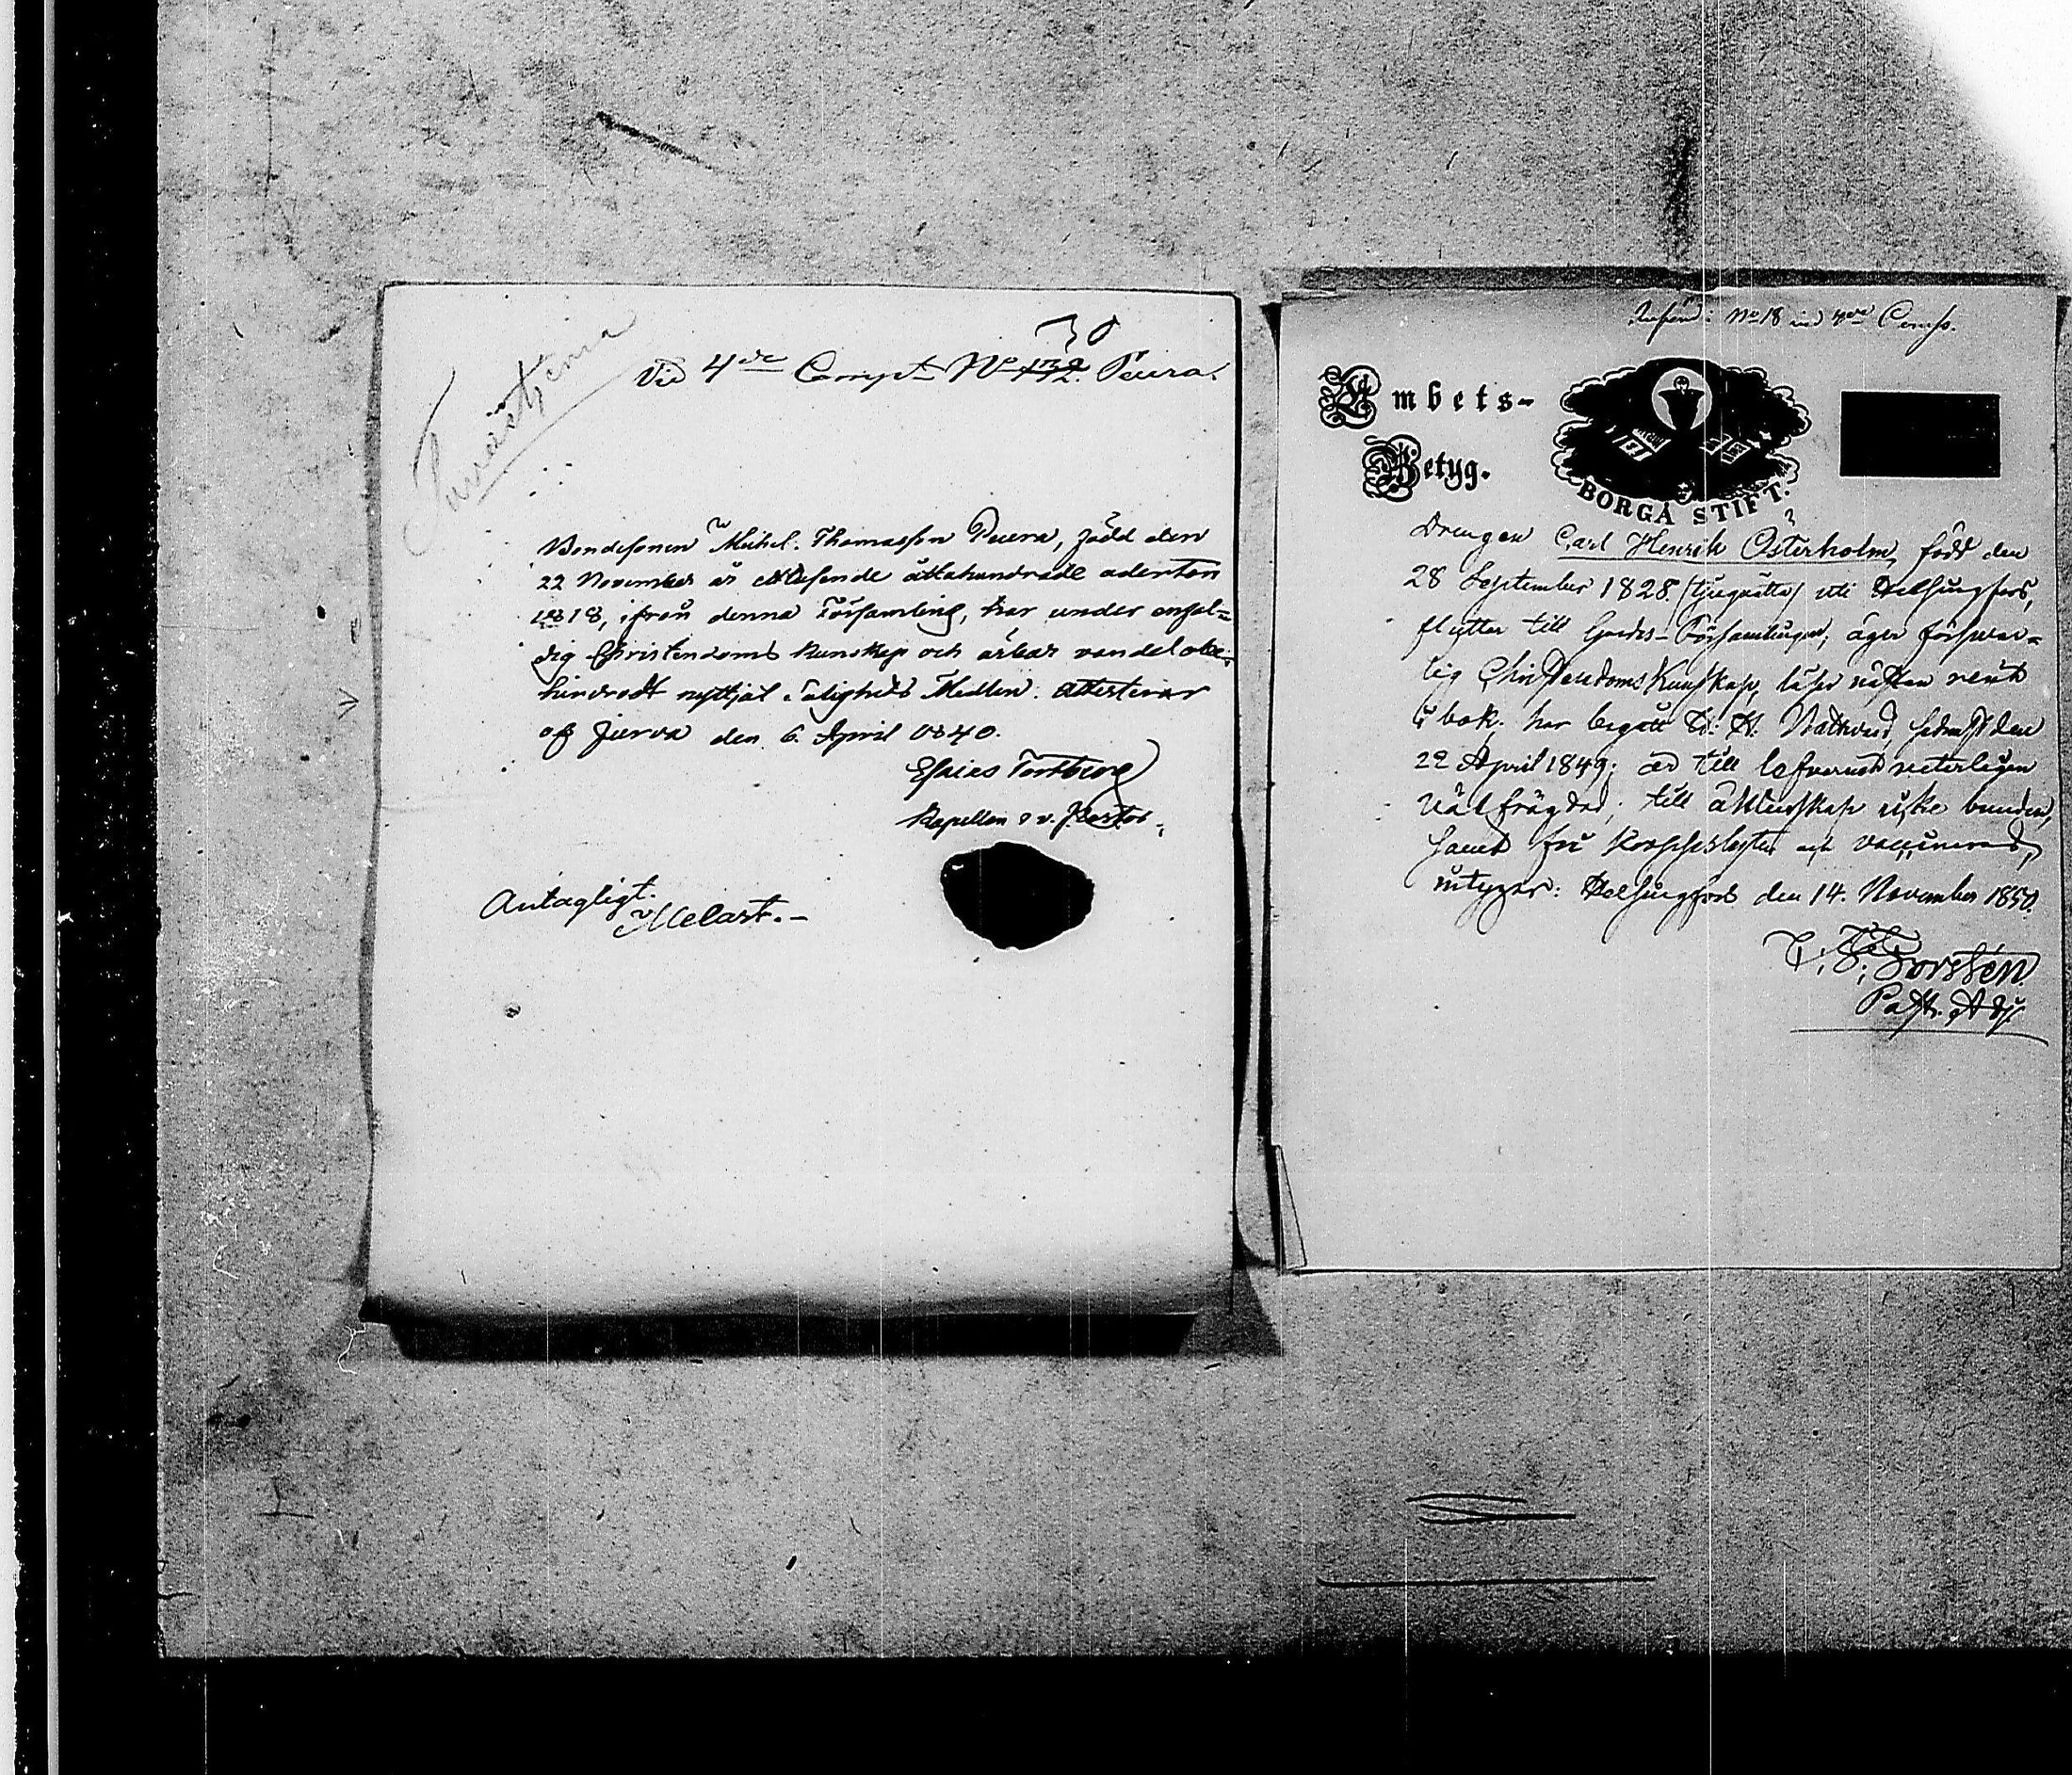 30
Vid 4de Compt No 132. Peura.
Bondesonen Michel Thomasson Peura, född den
22 November år ettusende åttahundrade aderton
1818, ifrån denna Församling, har under enfal=
dig Christendoms kunskap och ärbar vandel obe=
hindradt nyttjat Salighets Medlen: attesterar
af Jierva den 6. April 1840.
Esaias
Kapellan o v. Pastor.
Antagligt.
Melart.-
No 18 vid 4de Comp.
Embets-
Betyg.
BORGÅ STIFT.
Drengen Carl Henrik Österholm, född den
28 September 1828 (tjuguåtta) uti Helsingfors,
flyttar till Gardes-Församlingen; äger försvar=
lig Christendoms Kunskap, läser nästan rent
i bok, har begått H. H. Nattvard sednast den
22 April 1849; är till lefvernet veterligen
väl frägdad; till äktenskap icke bunden,
samt fri och vaccinerad,
intygar: Helsingfors den 14. November 1850.
Forstén
Past. Adj.